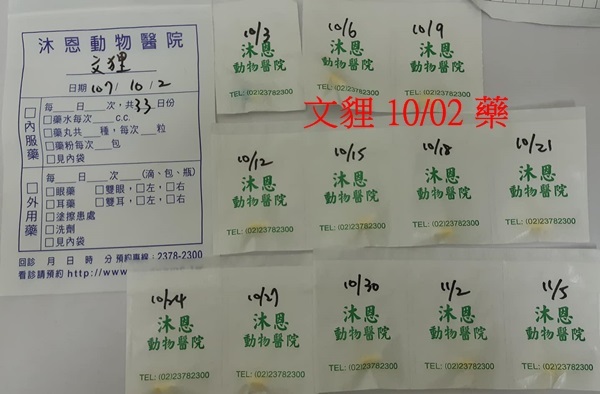 沐恩動物醫院
文狸
日期 107/10/2
每__日__次,共33日份
□內服藥
□藥水每次__c.c.
□藥丸共__種,每次__粒
□藥粉每次__包
□見內袋
每__日__次__(滴、包、瓶)
□外用藥
□眼藥 □雙眼,□左,□右
□耳藥 □雙耳,□左,□右
□塗擦患處
□洗劑
□見內袋
回診 月 日 時 分 預約專線:2378-2300
看診請預約 http://www
10/3
沐恩
動物醫院
TEL: (02)23782300
10/6
沐恩
動物醫院
TEL: (02)23782300
10/9
沐恩
動物醫院
TEL: (02)23782300
文貍 10/02 藥
10/12
沐恩
動物醫院
TEL: (02)23782300
10/15
沐恩
動物醫院
TEL: (02)23782300
10/18
沐恩
動物醫院
TEL: (02)23782300
10/21
沐恩
動物醫院
TEL: (02)23782300
10/24
沐恩
動物醫院
TEL: (02)23782300
10/27
沐恩
動物醫院
TEL: (02)23782300
10/30
沐恩
動物醫院
TEL: (02)23782300
11/2
沐恩
動物醫院
TEL: (02)23782300
11/5
沐恩
動物醫院
TEL: (02)23782300